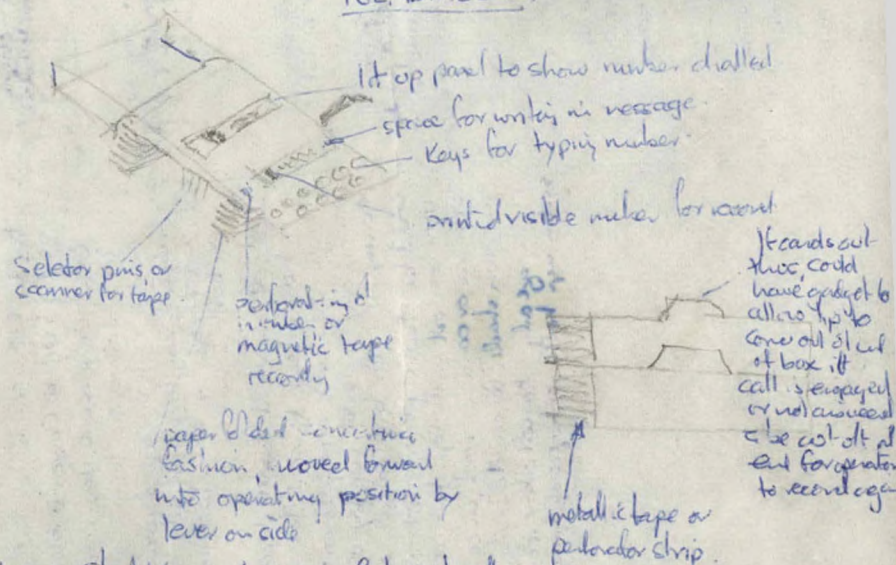 lift up panel to show number dialled
space for writing in message.
Keys for typing number.
printed visible number for record
Selector pins or
scanner for tape.
perforating of
number or
magnetic tape
recording
paper folded concertina
fashion, moved forward
into operating position by
lever on side
If cards out
this could
have gadget to
allow tip to
come out of end
of box if
call is engaged
or not answered
to be at
end for operator
to record again
metallic tape or
perforator strip.